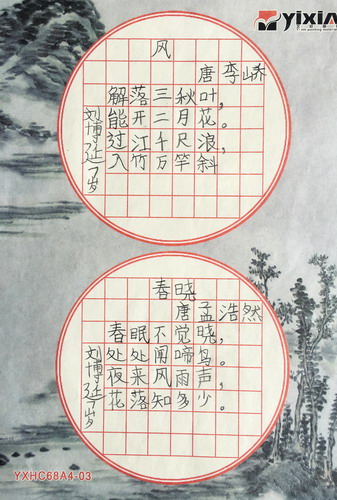 yixin
风
唐 李峤
解落三秋叶，
能开二月花。
过江千尺浪，
入竹万竿斜
刘博 七岁
春晓
唐 孟浩然
春眠不觉晓，
处处闻啼鸟。
夜来风雨声，
花落知多少。
刘博 七岁
YXHC68A4-03